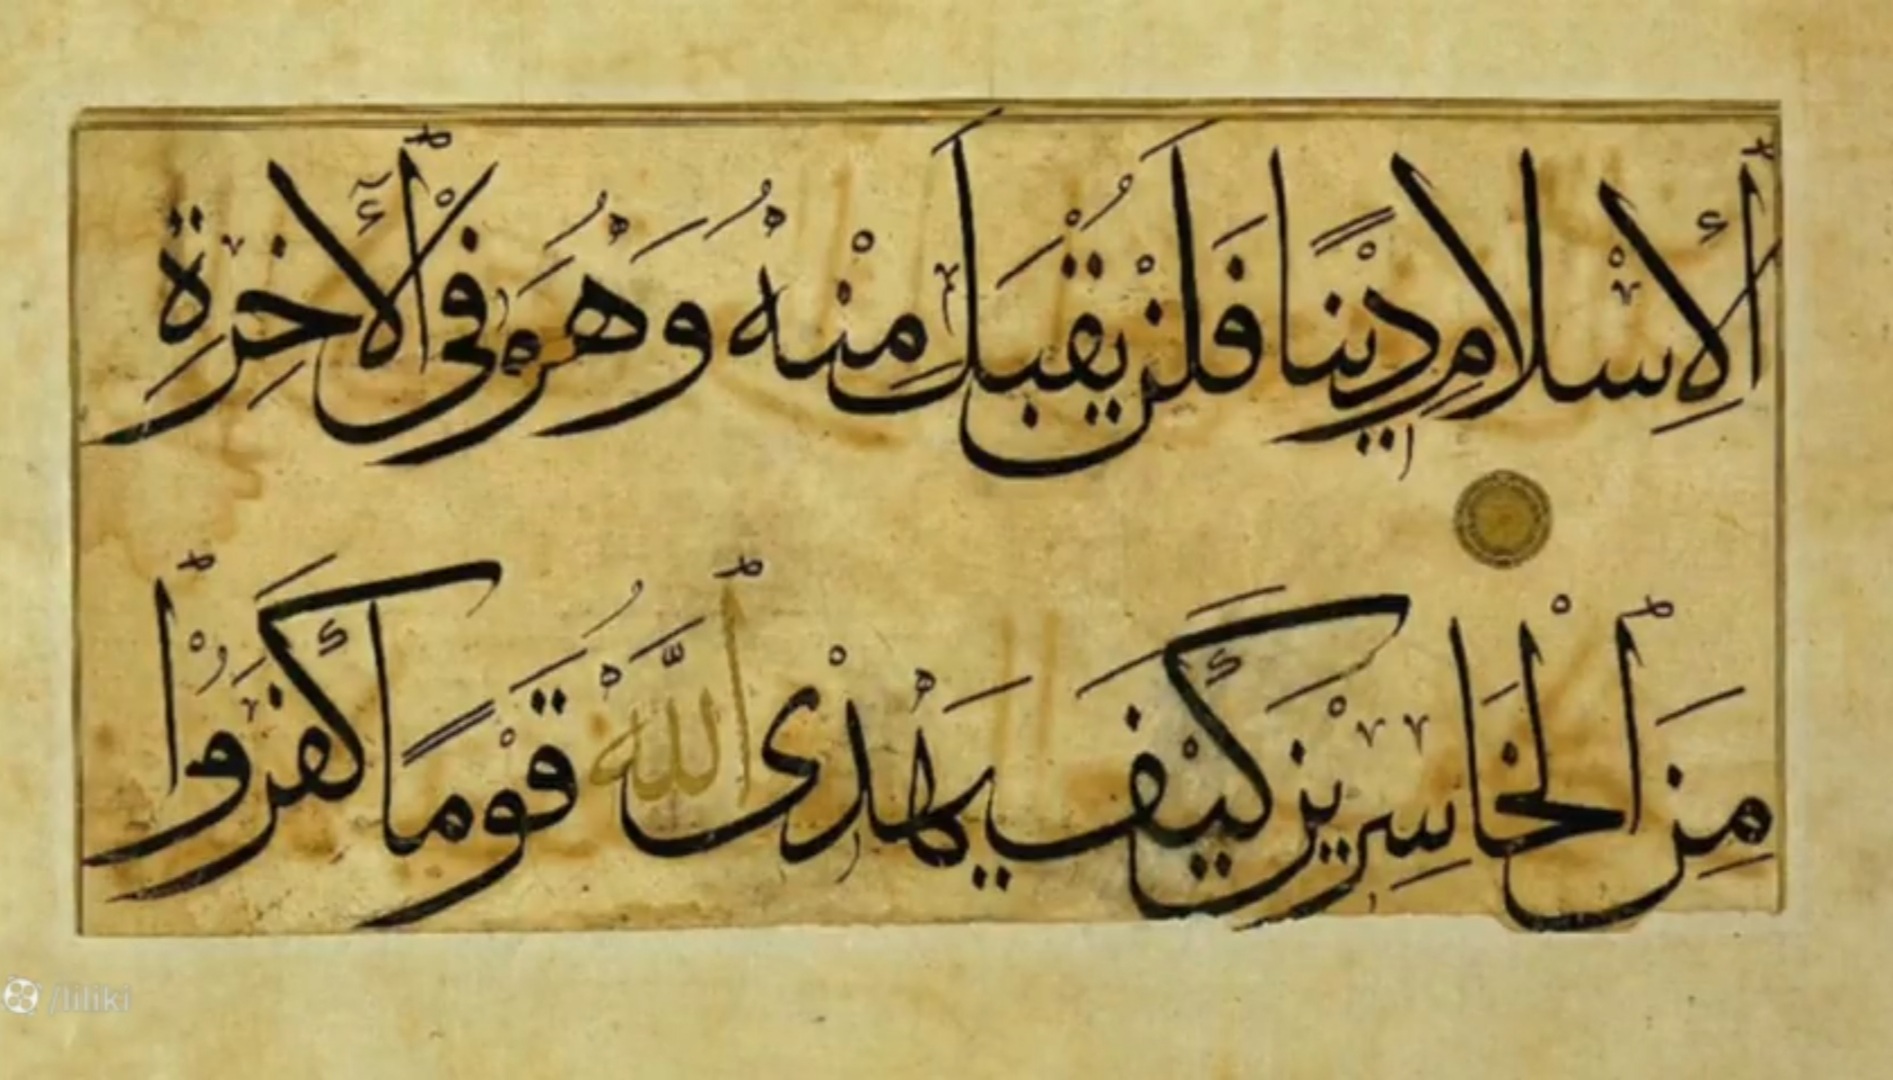 ٱلْإِسْلَامِ دِيْنًا فَلَنْ يُقْبَلَ مِنْهُ وَهُوَ فِى ٱلْأٓخِرَةِ
مِنَ ٱلْخَاسِرِيْنَ كَيْفَ يَهْدِى ٱللَّهُ قَوْمًا كَفَرُوْا
/liliki